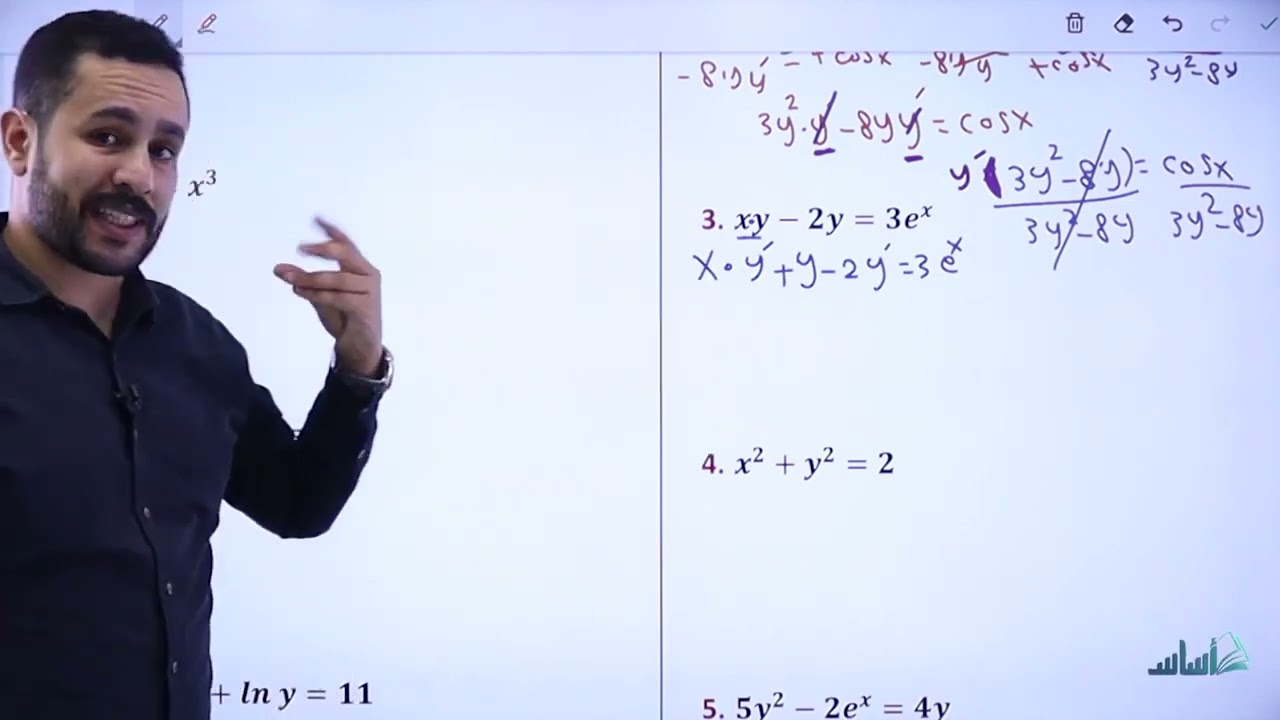 x³
+ ln y = 11
-8yy′ = + cosx -8yy′ + cosx 3y²-8y
3y²·y′ - 8yy′ = cosx
y′(3y²-8y) = cosx
3y²-8y 3y²-8y
3. xy − 2y = 3eˣ
x·y′+y-2y′=3eˣ
4. x² + y² = 2
أساس
5. 5y² − 2eˣ = 4y